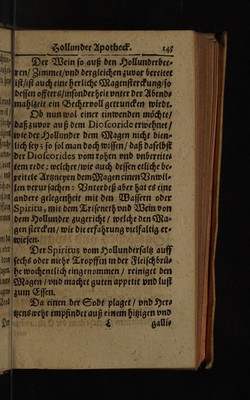 Hollunder Apotheck. 145
Der Wein so auß den Hollunderbee-
ren/ Zimmet/ vnd dergleichen zuvor bereitet
ist/ ist auch eine herliche Magensterckung/ so
dessen offters/ insonderheit vnter der Abend-
mahlzeit ein Bechervoll getruncken wirdt.
Ob nun wol einer einwenden möchte/
daß zuvor auß dem Dioscoride erwehnet/
wie der Hollunder dem Magen nicht dien-
lich sey: so sol man doch wissen/ daß daselbst
der Dioscorides vom rohen vnd vnbereite-
tem rede: welcher/ wie auch dessen etliche berei-
tete Artzneyen dem Magen einen Vnwil-
len verursachen: Vnterdeß aber hat es eine
andere gelegenheit mit den Wassern oder
Spiritu, mit dem Trisenet/ vnd Wein von
dem Hollunder zugericht/ welche den Ma-
gen stercken/ wie die erfahrung vielfaltig er-
wiesen.
Der Spiritus vom Hollundersaltz auff
sechs oder mehr Tropffen in der Fleischbrü-
he wochentlich eingenommen/ reiniget den
Magen/ vnd machet guten appetit vnd lust
zum Essen.
Da einen der Sodt plaget/ vnd Her-
tzenswehe empfindet auß einem hitzigen vnd
galli-